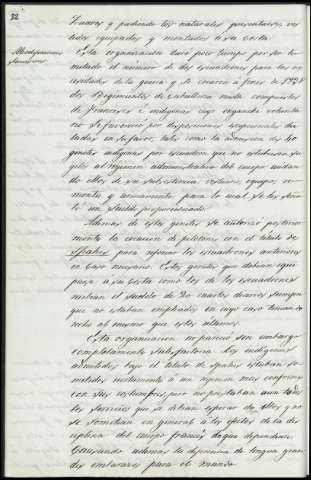 32
Zuavos y pudiendo los naturales presentarse ves
tidos equipados y montados a su costa.
Modificaciones
Esta organización duró poco tiempo por ser li
mitado el número de los escuadrones para las ne
cesidades de la guerra y se crearon á fines de 1834
dos Regimientos de caballería mixta compuestos
de franceses é indígenas cuyo enganche volunta
rio se favoreció por disposiciones especiales dic
tadas en su favor, tales como la admisión de 40
ginetes indígenas por escuadron que no estuviesen su
jetos al régimen administrativo del cuerpo cuidan
do ellos de su subsistencia, vestuario, equipo, re
monta y armamento para lo cual se les seña
ló un sueldo proporcionado.
Además de estos ginetes se autorizó posterior
mente la creación de pelotones con el título de
Spahis para reforzar los escuadrones anteriores
en caso necesario. Estos ginetes que debían equi
parse a su costa como los de los escuadrones
recibían el sueldo de 20 cuartos diarios siempre
que no estaban empleados en cuyo caso tenían de
recho al mismo que estos últimos.
Esta organización no pareció sin embargo
completamente satisfactoria. Los indígenas
admitidos bajo el título de Spahis estaban so
metidos ciertamente á un régimen mas conforme
con sus costumbres, pero no prestaban aun todos
los servicios que se debían esperar de ellos y no
se sometían en general á los efectos de la dis
ciplina del cuerpo francés de que dependían.
Causando además la diferencia de lengua gran
des embarazos para el mando.